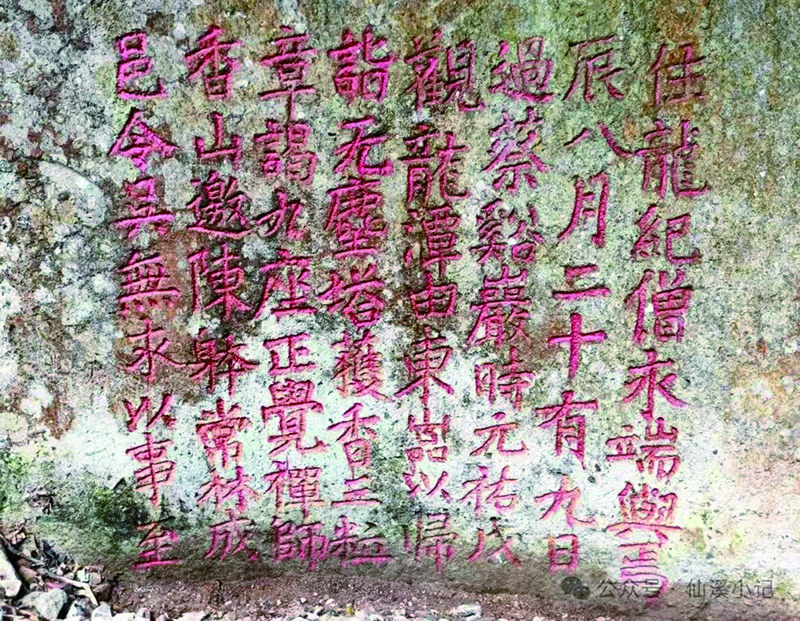 邑令吳無求以事至
香山邀陳常林成
章謁九座正覺禪師
詣无塵塔獲香三粒
觀龍潭由東以歸
過蔡谿巖時元祐戊
辰八月二十有九日
住龍紀僧永端與焉
公众号·仙溪小记